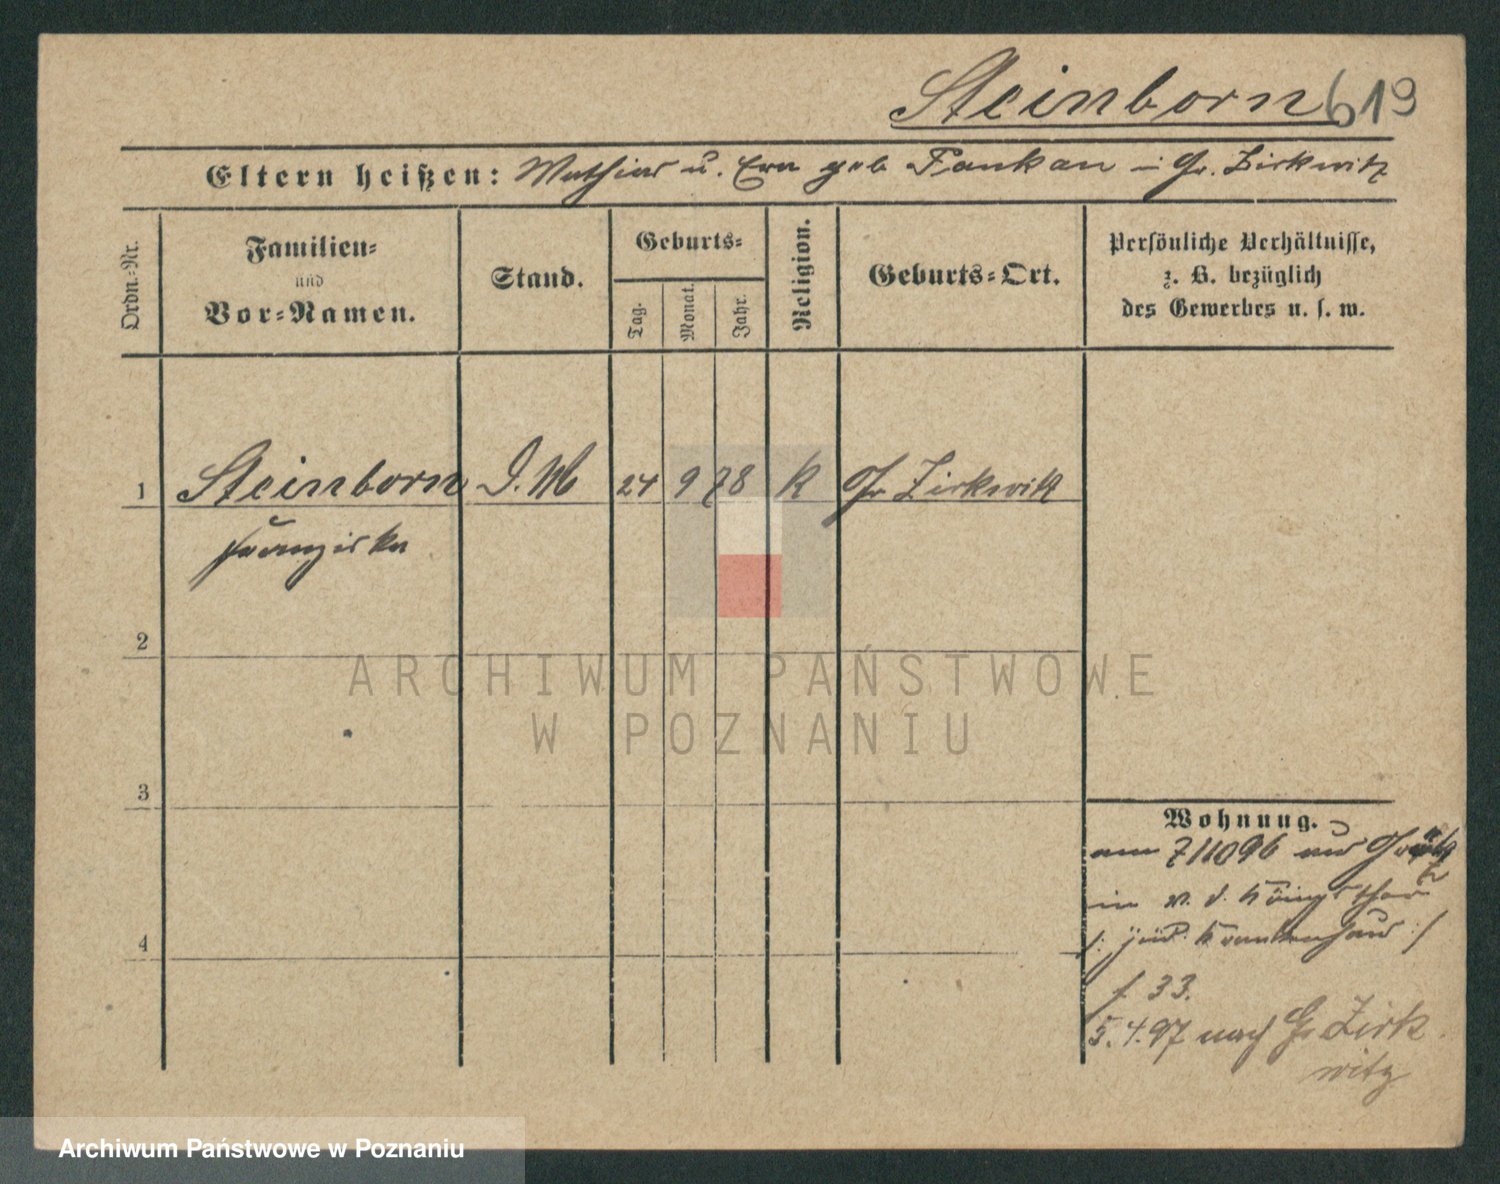 Steinborn 619
Eltern heißen: Mathias u. Eva geb Fankan in Gr. Zirkwitz
Ordn.-Nr.
Familien-
und
Vor-Namen.
Stand.
Geburts-
Tag. Monat. Jahr.
Religion.
Geburts-Ort.
Persönliche Verhältnisse,
z. B. bezüglich
des Gewerbes u. s. w.
1 Steinborn D. M 24 9 78 K Gr Zirkwitz
Franziska
2
ARCHIWUM PAŃSTWOWE
W POZNANIU
3
Wohnung.
am 7/10 96 aus Grätz
in v. d. Königsthor
/: jüd. Krankenhaus :/
f 33.
5. 4. 97 nach Gr Zirk
witz
4
Archiwum Państwowe w Poznaniu